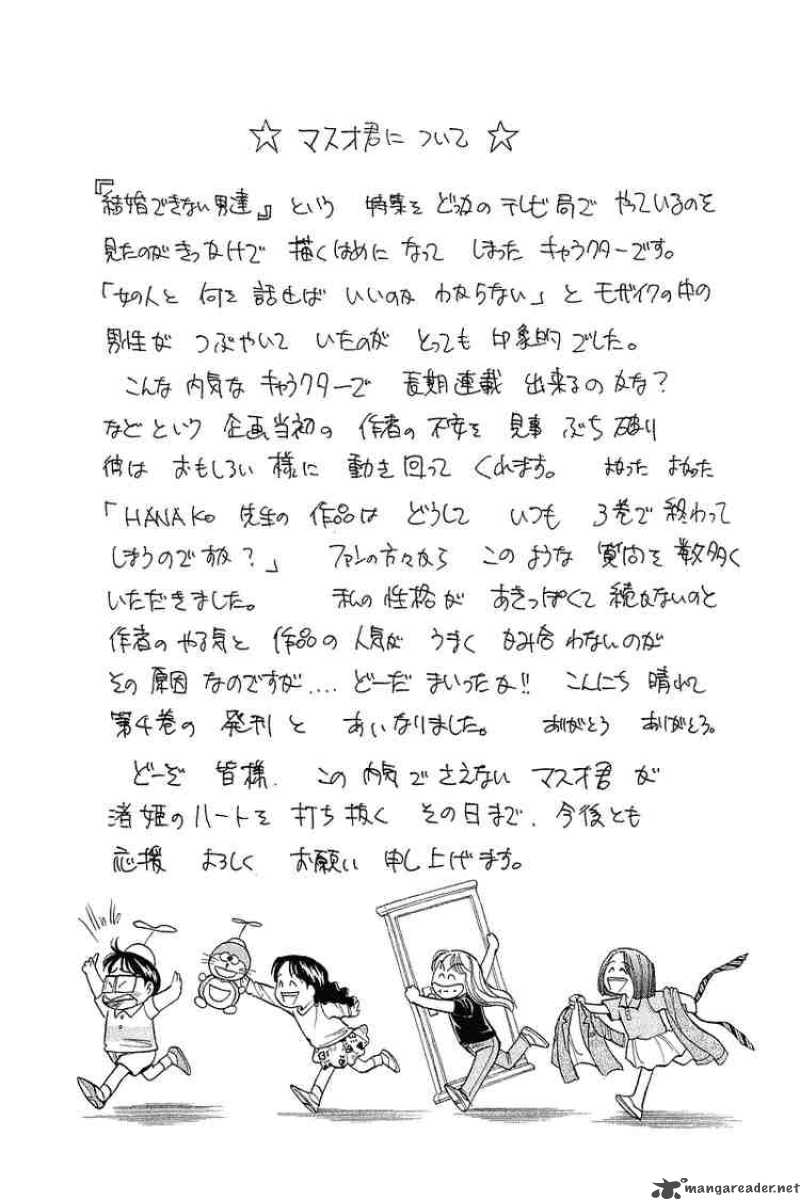 ☆ マスオ君について ☆
『結婚できない男達』という 特集を どっかの テレビ局で やっているのを
見たのがきっかけで 描くはめに なって しまった キャラクターです。
「女の人と 何を 話せば いいのか わからない」と モザイクの中の
男性が つぶやいて いたのが とっても 印象的でした。
こんな 内気な キャラクターで 長期連載 出来るのかな?
などという 企画当初の 作者の 不安を 見事 ぶち破り
彼は おもしろい 様に 動き回って くれます。 よかった よかった
「HANAKO 先生の 作品は どうして いつも 3巻で 終わって
しまうのですか?」 ファンの方々から このような 質問を 数多く
いただきました。 私の 性格が あきっぽくて 続かないのと
作者の やる気と 作品の 人気が うまく かみ合わないのが
その 原因 なのですが.... どーだ まいったか!! こんにち 晴れて
第4巻の 発刊と あいなりました。 ありがとう ありがとう。
どーぞ 皆様、この 内気で さえない マスオ君 が
渚姫のハートを 打ち抜く その日まで、今後とも
応援 よろしく お願い 申し上げます。
mangareader.net